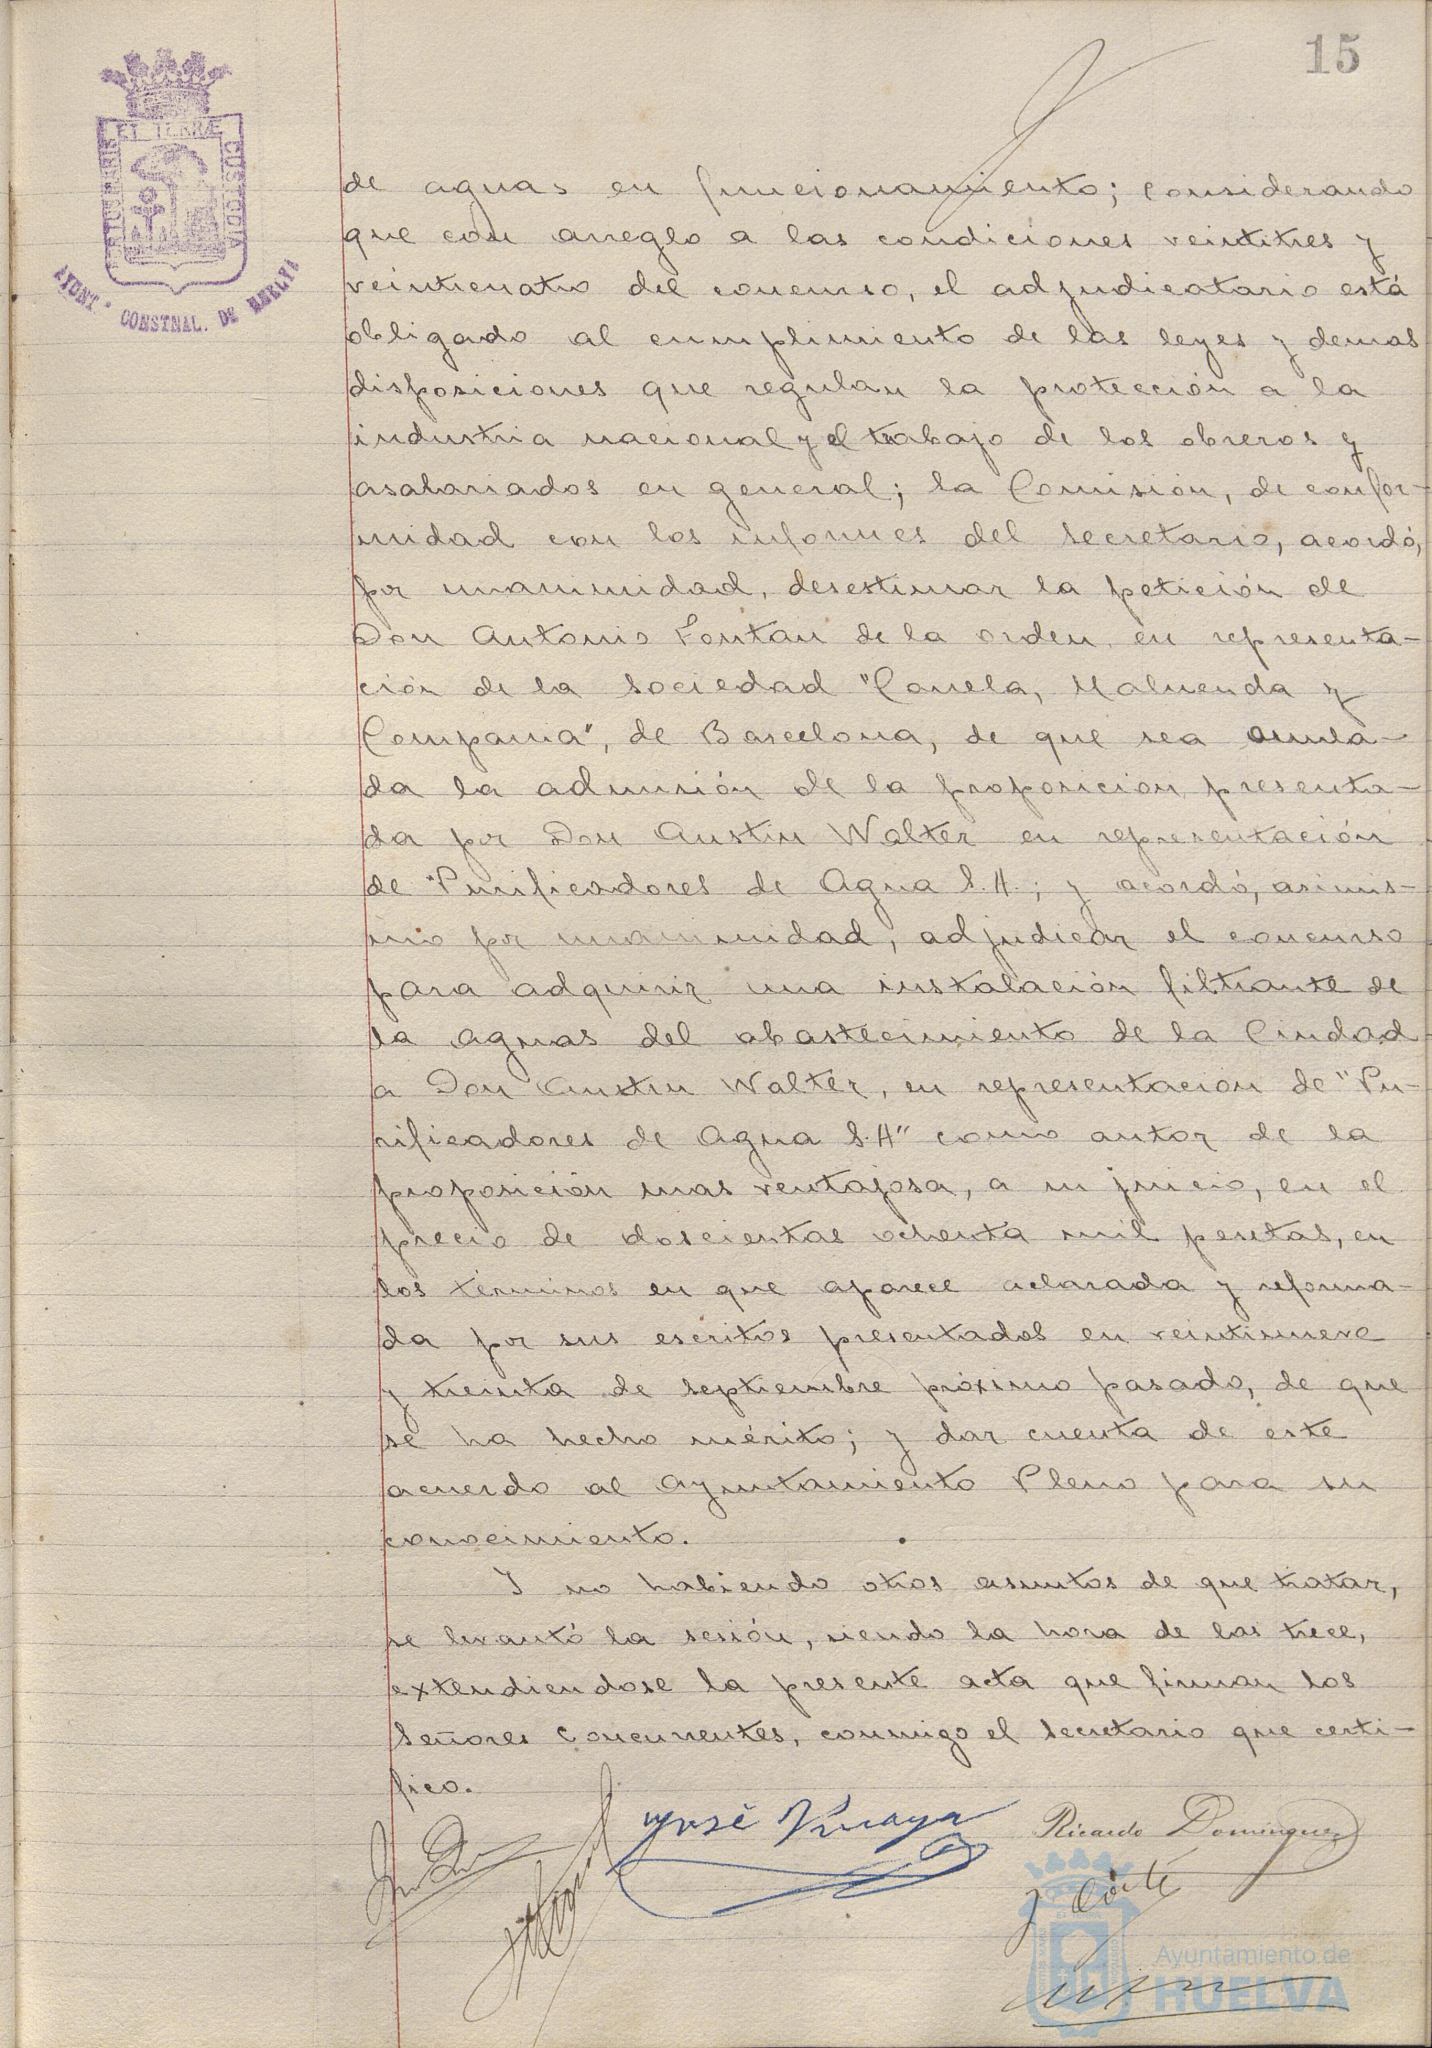 15
ET TERRAE
PORTUS MARIS
CUSTODIA
AYUNT.º CONSTNAL. DE HUELVA
de aguas en funcionamiento; considerando
que con arreglo a las condiciones veintitres y
veinticuatro del concurso, el adjudicatario está
obligado al cumplimiento de las leyes y demas
disposiciones que regulan la protección a la
industria nacional y el trabajo de los obreros y
asalariados en general; la Comisión, de confor-
midad con los informes del secretario, acordó,
por unanimidad, desestimar la petición de
Don Antonio Fontan de la orden, en representa-
ción de la sociedad "Canela, Maluenda y
Compania", de Barcelona, de que sea anula-
da la admisión de la proposición presenta-
da por Don Austin Walter en representación
de "Purificadores de Agua S.A.; y acordó, asimis-
mo por unanimidad, adjudicar el concurso
para adquirir una instalación filtrante de
la aguas del abastecimiento de la Ciudad
a Don Austin Walter, en representación de "Pu-
rificadores de Agua S.A" como autor de la
proposición mas ventajosa, a su juicio, en el
precio de doscientas ochenta mil pesetas, en
los términos en que aparece aclarada y reforma-
da por sus escritos presentados en veintinueve
y treinta de septiembre próximo pasado, de que
se ha hecho mérito; y dar cuenta de este
acuerdo al Ayuntamiento Pleno para su
conocimiento.
Y no habiendo otros asuntos de que tratar,
se levantó la sesión, siendo la hora de las trece,
extendiendose la presente acta que firman los
señores concurrentes, conmigo el secretario que certi-
fico.
José
Ricardo Dominguez
Ayuntamiento de
HUELVA